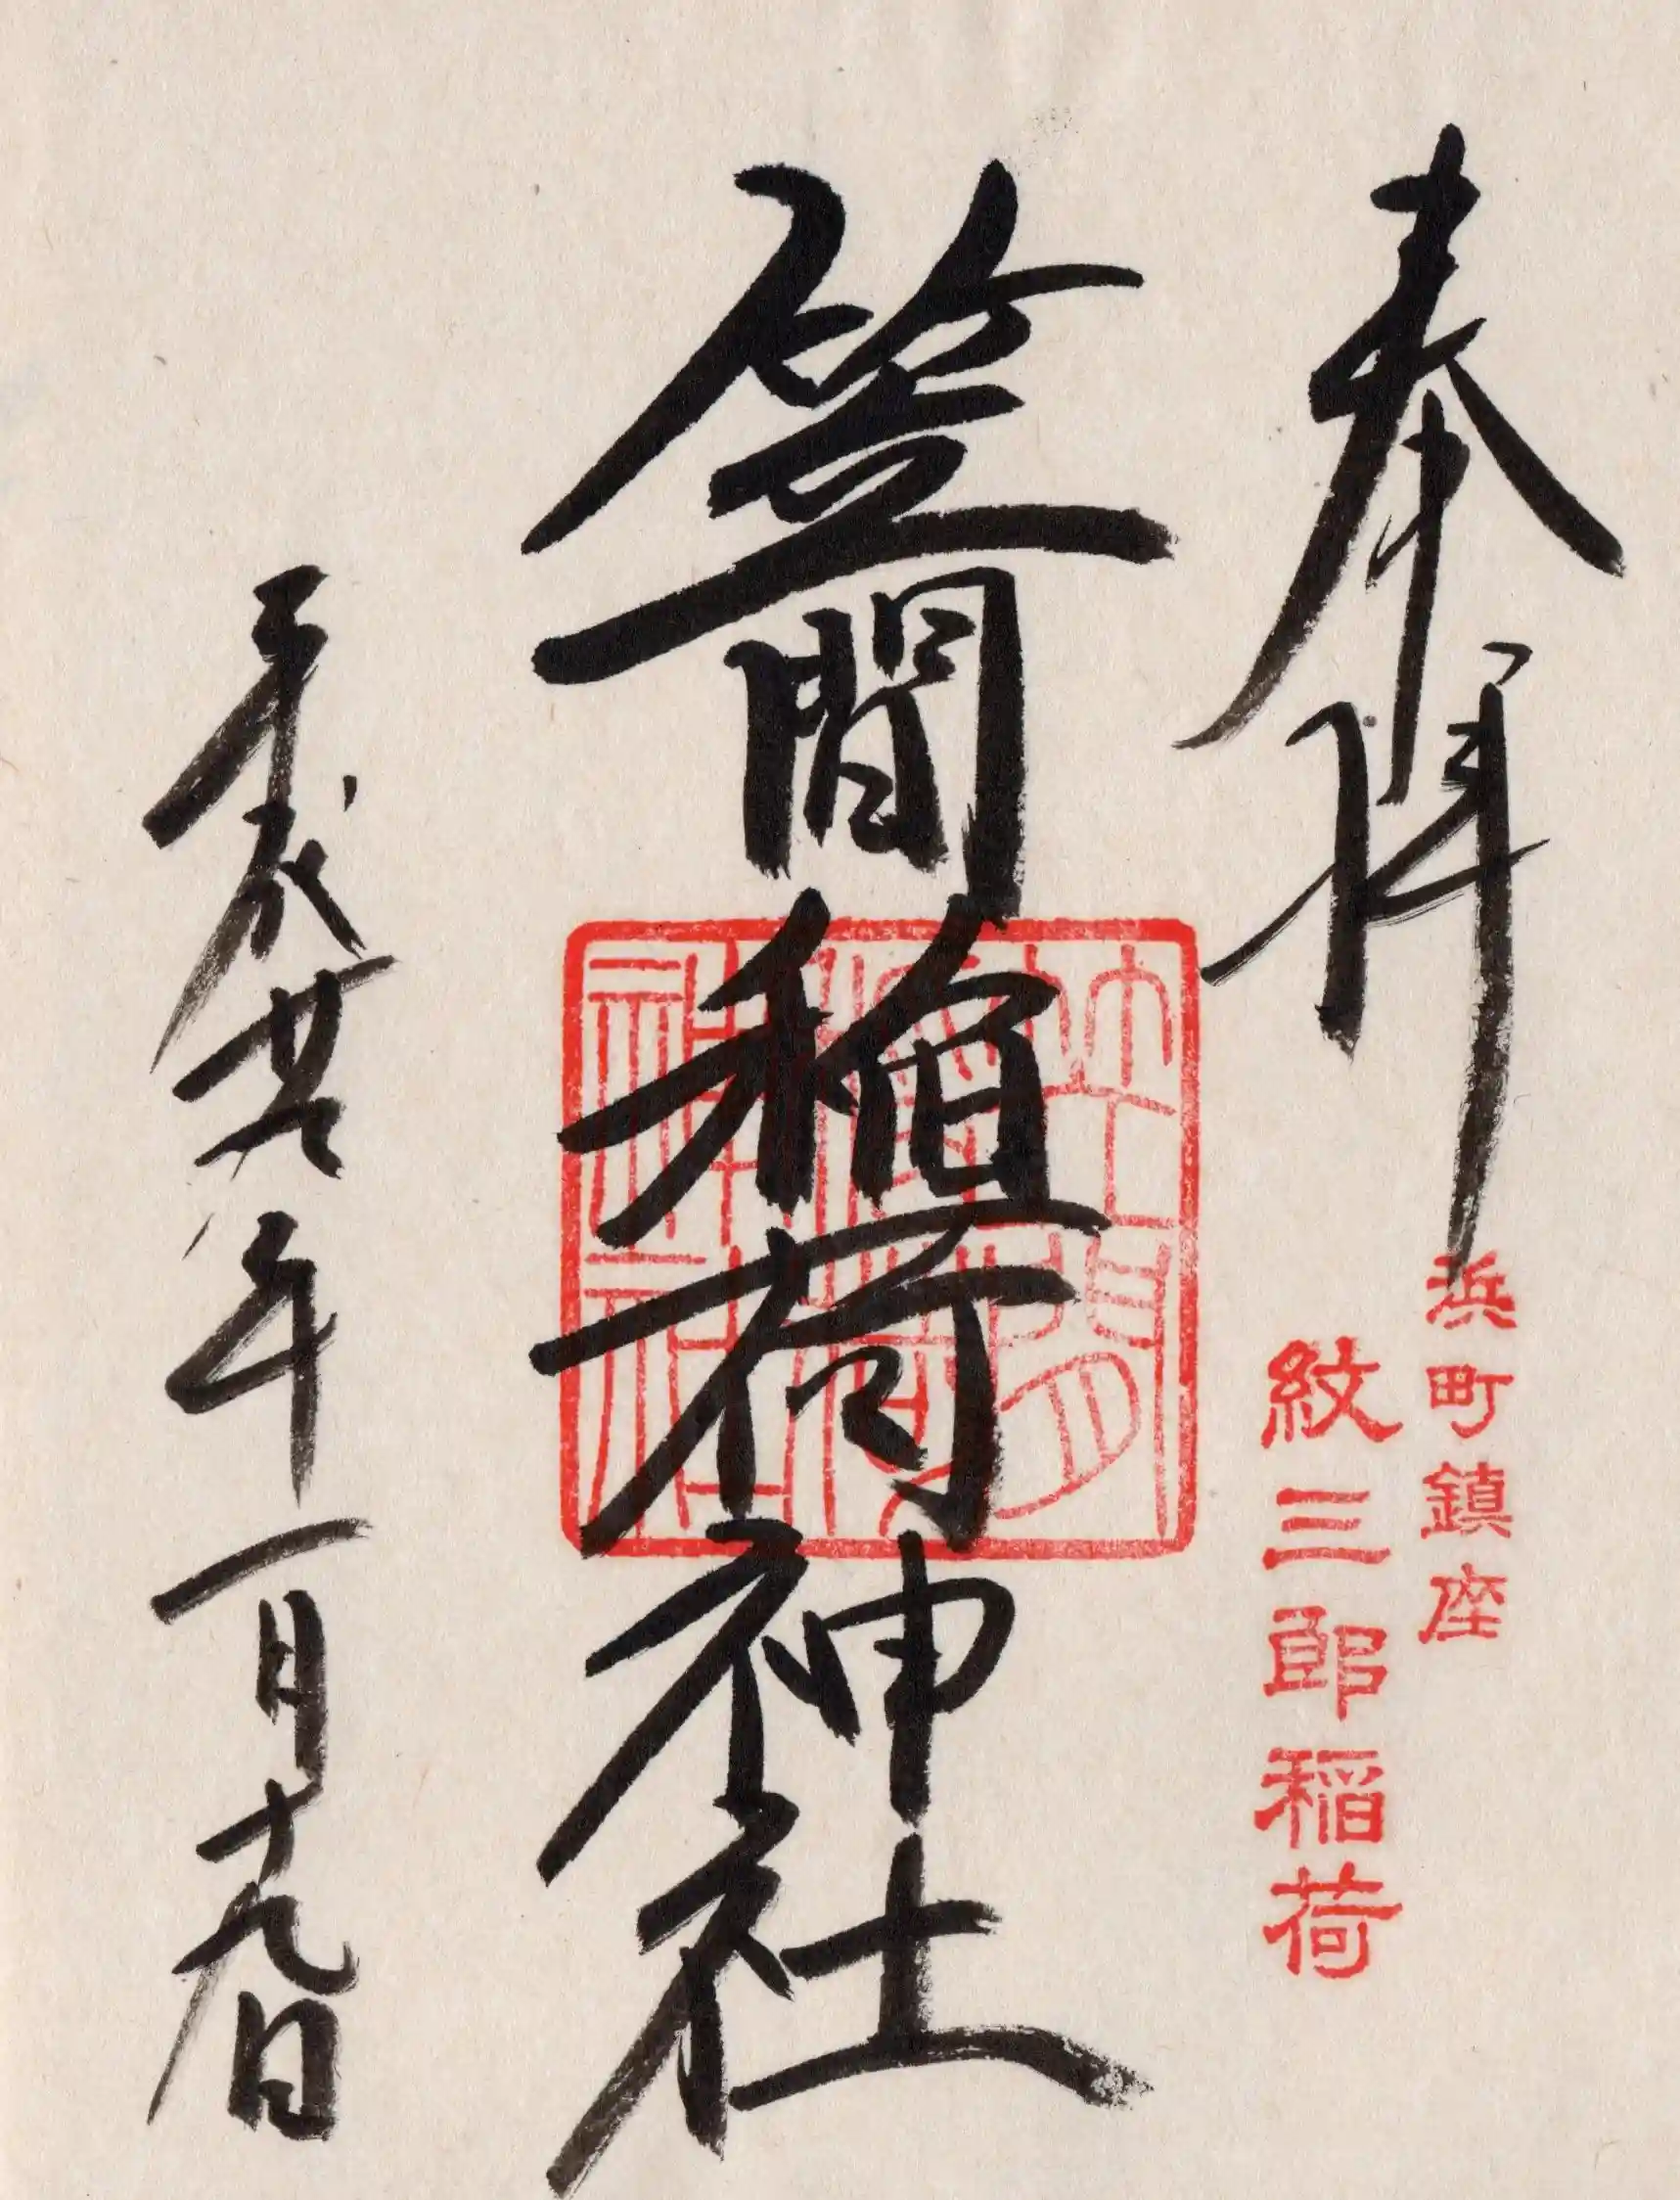 奉拝
浜町鎮座
紋三郎稲荷
笠間稲荷神社
笠間
稲荷
神社
平成廿年一月十九日